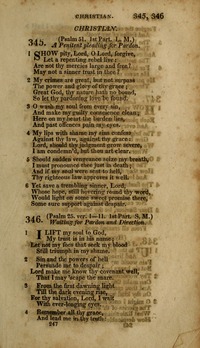 CHRISTIAN. 345, 346
CHRISTIAN.
345. (Psalm 51. 1st Part. L. M.)
A Penitent pleading for Pardon.
SHOW pity, Lord, O Lord, forgive,
Let a repenting rebel live:
Are not thy mercies large and free?
May not a sinner trust in thee?
2 My crimes are great, but not surpass
The power and glory of thy grace;
Great God, thy nature hath no bound,
So let thy pardoning love be found.
3 O wash my soul from every sin,
And make my guilty conscience clean;
Here on my heart the burden lies,
And past offences pain my eyes.
4 My lips with shame my sins confess,
Against thy law, against thy grace:
Lord, should thy judgment grow severe,
I am condemn'd, but thou art clear.
5 Should sudden vengeance seize my breath,
I must pronounce thee just in death;
And if my soul were sent to hell,
Thy righteous law approves it well.
6 Yet save a trembling sinner, Lord,
Whose hope, still hovering round thy word,
Would light on some sweet promise there,
Some sure support against despair.
346. (Psalm 25. ver. 1—11. 1st Part. S. M.)
Waiting for Pardon and Direction.
1 I LIFT my soul to God,
My trust is in his name;
Let not my foes that seek my blood
Still triumph in my shame.
2 Sin and the powers of hell
Persuade me to despair;
Lord make me know thy covenant well,
That I may 'scape the snare.
3 From the first dawning light
Till the dark evening rise,
For thy salvation, Lord, I wait
With ever-longing eyes.
4 Remember all thy grace,
And lead me in thy truth
247